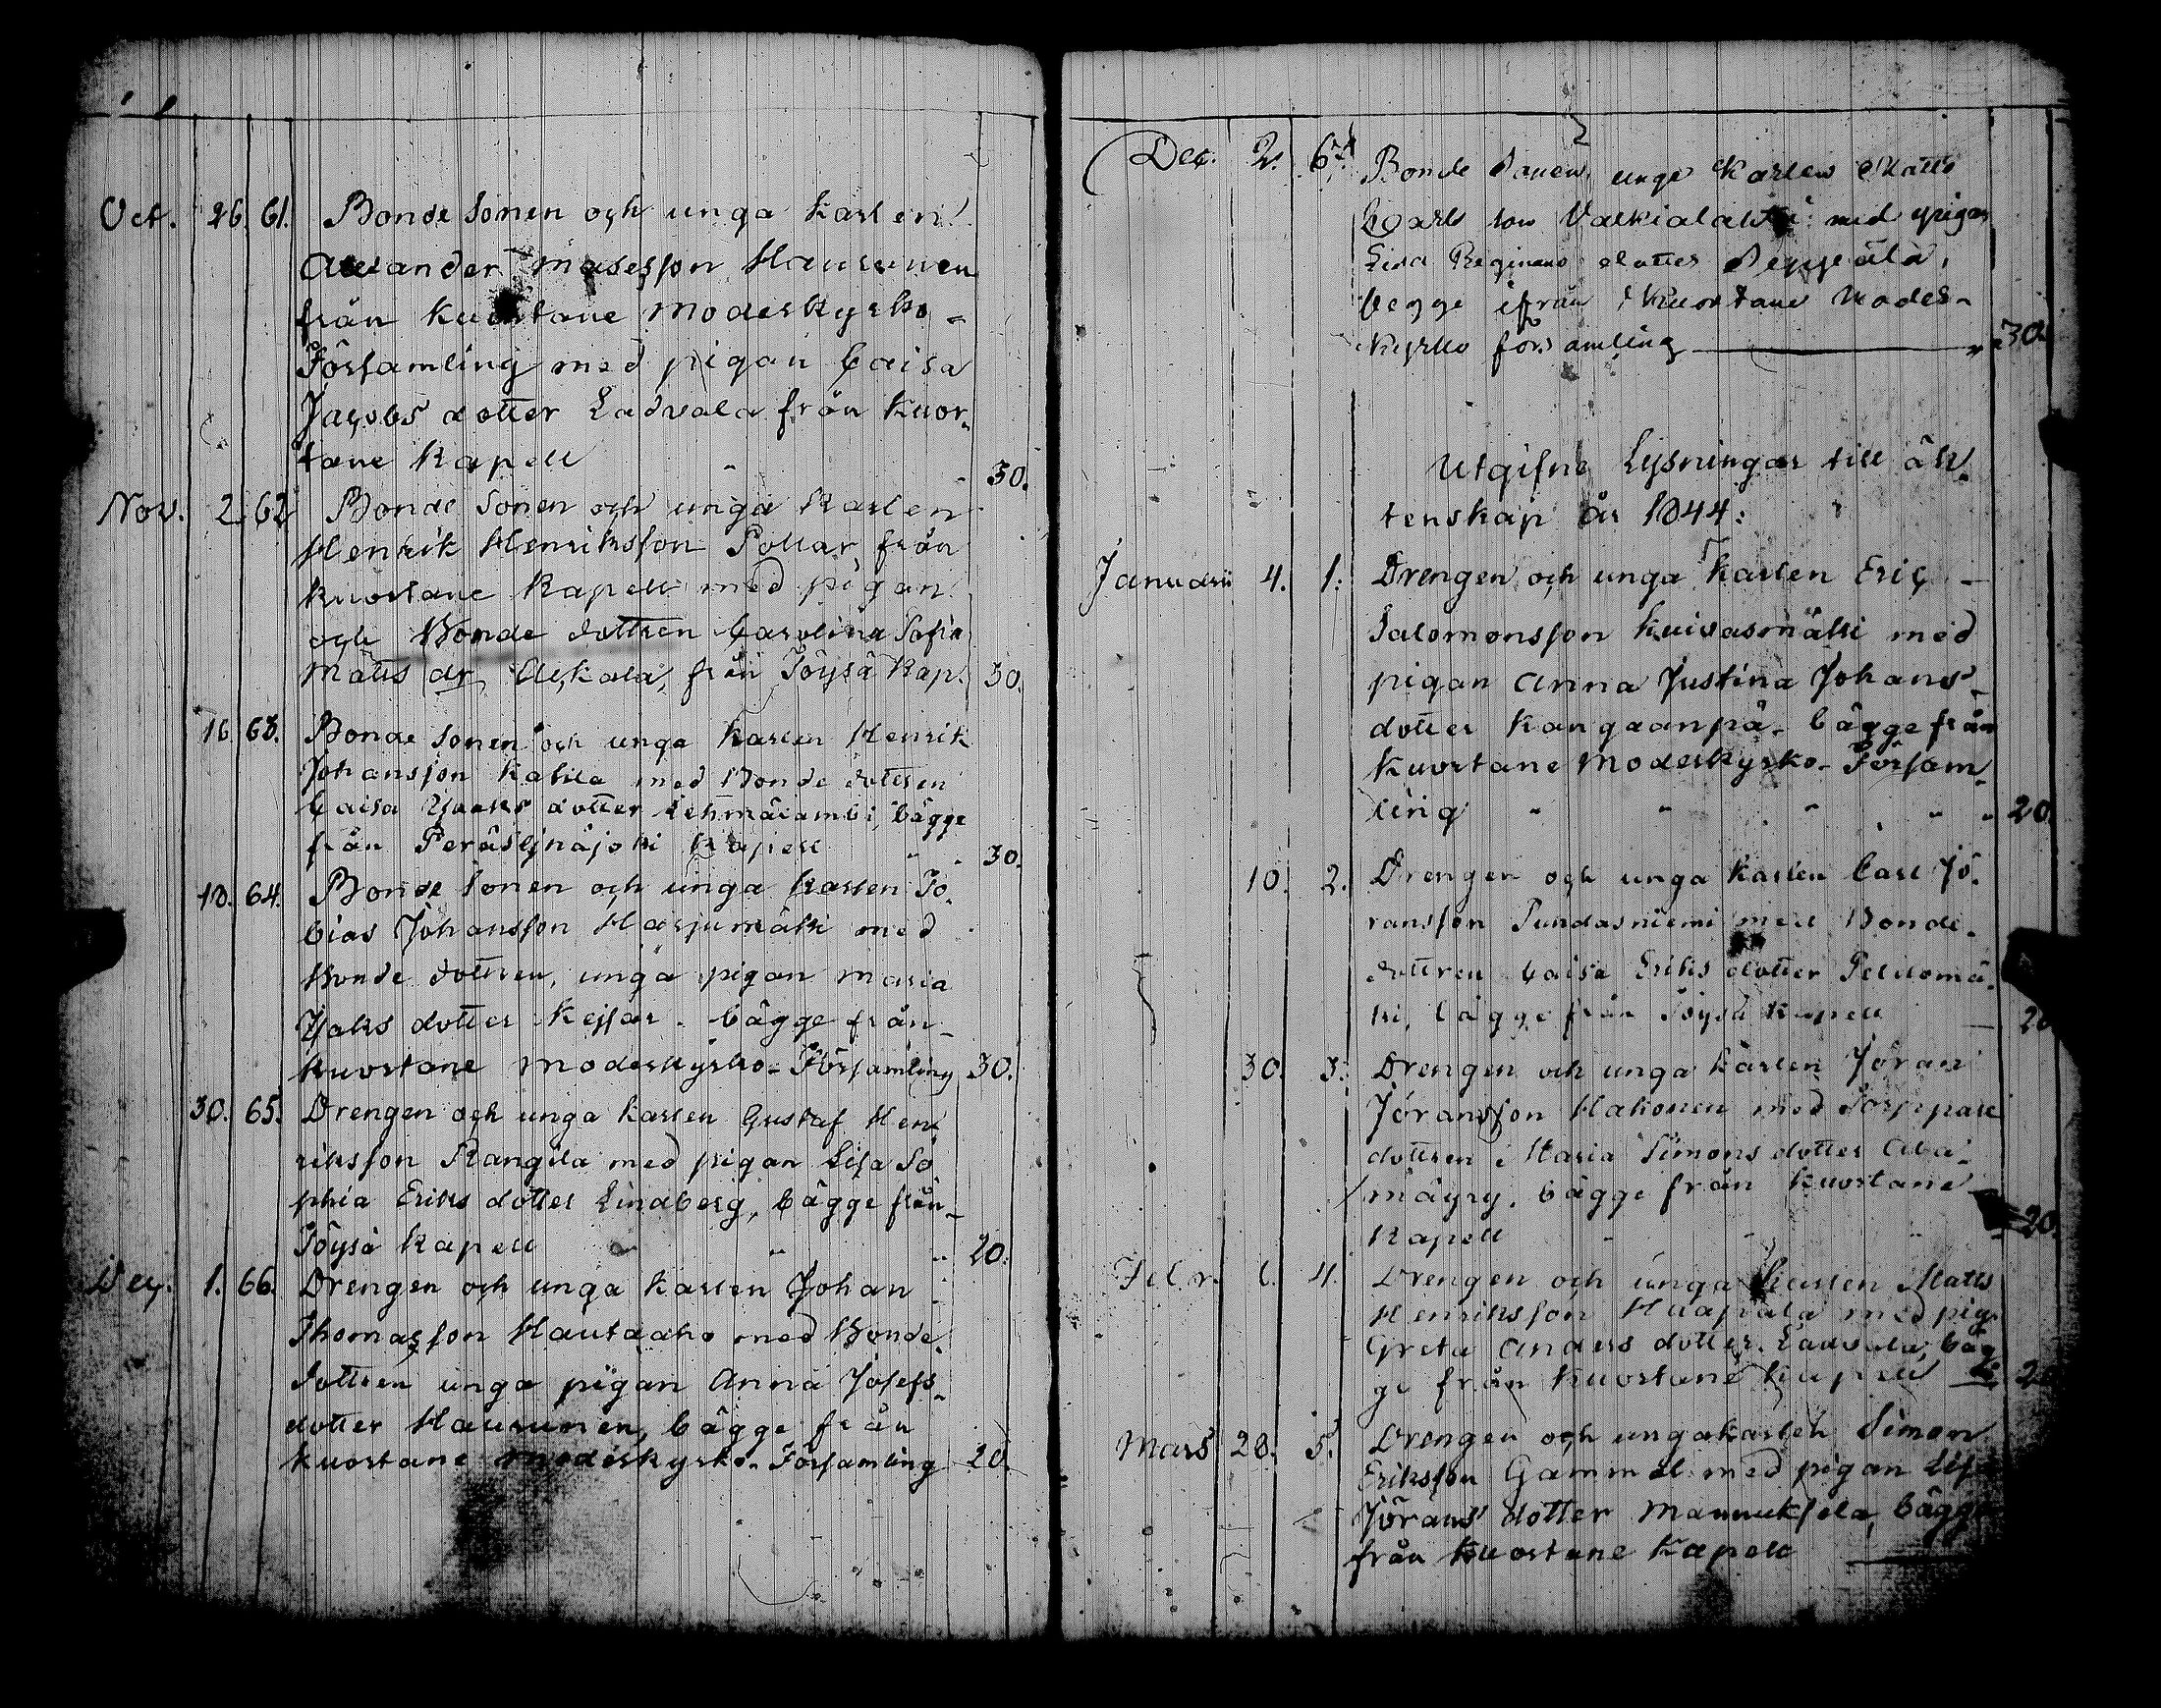 Oct. 26. 61. Bonde Sonen och unga Karlen
Alexander Matsson Haurunen
från Kuortane Moderkyrko-
Församling med pigan Caisa
Jacobs dotter Ladvala från Kuor-
tane Kapell " " 30.
Nov. 2. 62 Bonde Sonen och unga Karlen
Henrik Henriksson Pollar från
Kuortane Kapell med pigan
och Bonde dottren Carolina Sofia
Matts dr från Töysä Kap. 30.
16. 63. Bonde Sonen och unga Karlen Henrik
Johansson med Bonde dottren
Caisa dotter bägge
från Peräseinäjoki Kapell " " 30.
18. 64. Bonde Sonen och unga Karlen To-
bias Johansson Harjumäki med
Bonde dottren, unga pigan Maria
Isaks dotter Keisar. bägge från
Kuortane Moderkyrko- Församling 30.
30. 65. Drengen och unga Karlen Gustaf Hen-
riksson Rangila med pigan Lisa So
phia Eriks dotter Lindberg, bägge från
Töysä Kapell " " 20.
Dec. 1. 66. Drengen och unga Karlen Johan
Thomasson Hautaaho med Bonde
dottren unga pigan Anna Josefs
dotter Haurunen, bägge från
Kuortane Moderkyrko- Församling 20.
Dec. 2. Bonde Sonen unge Karlen Matts
Carls son med pigan
Lisa dotter Seppälä,
begge ifrån Kuortane Moder-
kyrko församling " 30
Utgifne Lysningar till äk-
tenskap år 1844:
Januarii 4. 1. Drengen och unga Karlen Eric
Salomonsson Kuivasmäki med
pigan Anna Justina Johans
dotter Kangaanpä- bägge från
Kuortane Moderkyrko- Försam-
ling " " " " 20.
10. 2. Drengen och unga Karlen Carl Jö-
ransson Pundasniemi med Bonde-
dottren Caisa Eriks dotter Peldomä-
ki, bägge från Töysä Kapell 20
30. 3. Drengen och unga Karlen Jöran
Jöransson Hakonen med Torppare
dottren Maria Simons dotter Ala-
mäyry. bägge från Kuortane
Kapell " " " 20.
Febr. 4. Drengen och unga Karlen Matts
Henriksson Haapala med pig.
Greta Anders dotter Ladvala, bäg-
ge från Kuortane Kapell 20
Mars 28. 5. Drengen och unga karlen Simon
Eriksson Gammel med pigan Lisa
Jörans dotter Mannuksela, bägge
från Kuortane Kapell